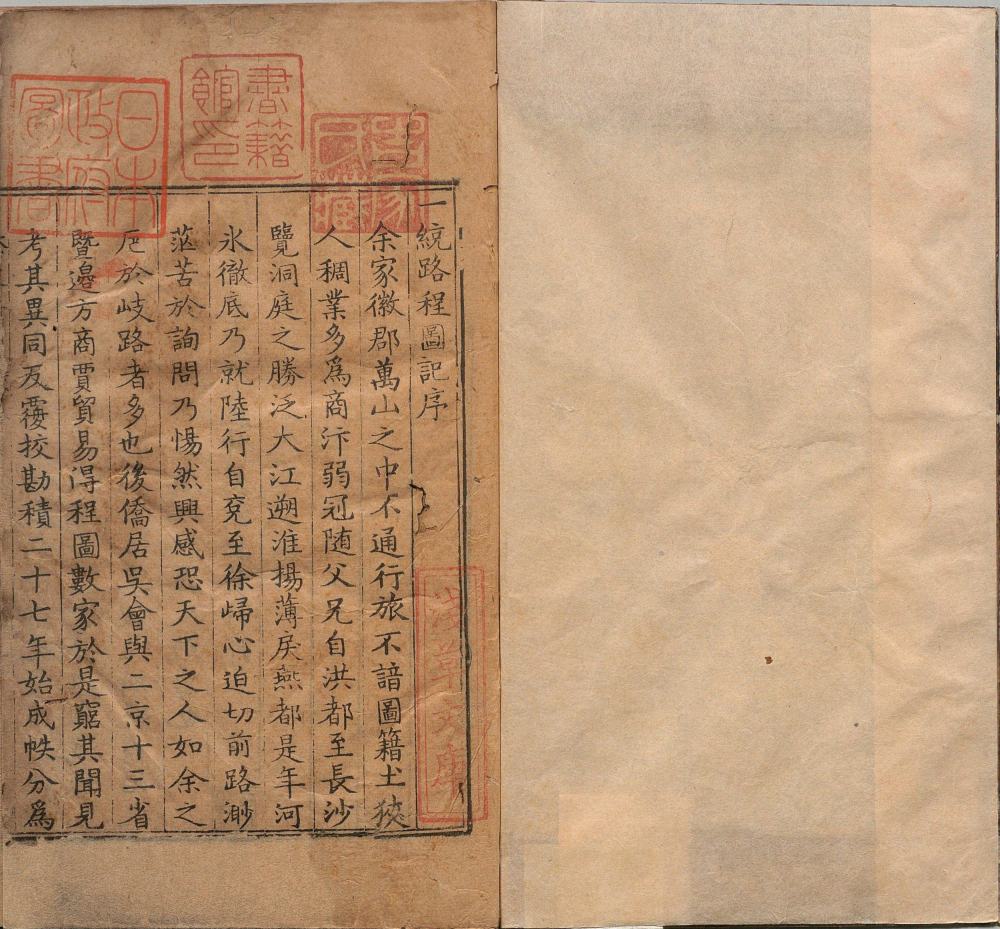 一統路程圖記序
余家徽郡萬山之中不通行旅不諳圖籍土狹
人稠業多爲商汴弱冠随父兄自洪都至長沙
覽洞庭之勝泛大江遡淮揚薄戾燕都是年河
氷徹底乃就陸行自兖至徐歸心迫切前路渺
茫苦於詢問乃惕然興感恐天下之人如余之
厄於岐路者多也後僑居吳會與二京十三省
暨邉方商賈貿易得程圖數家於是窮其聞見
考其異同反覆挍勘積二十七年始成帙分爲
書籍館印
日本政府圖書
淺草文庫